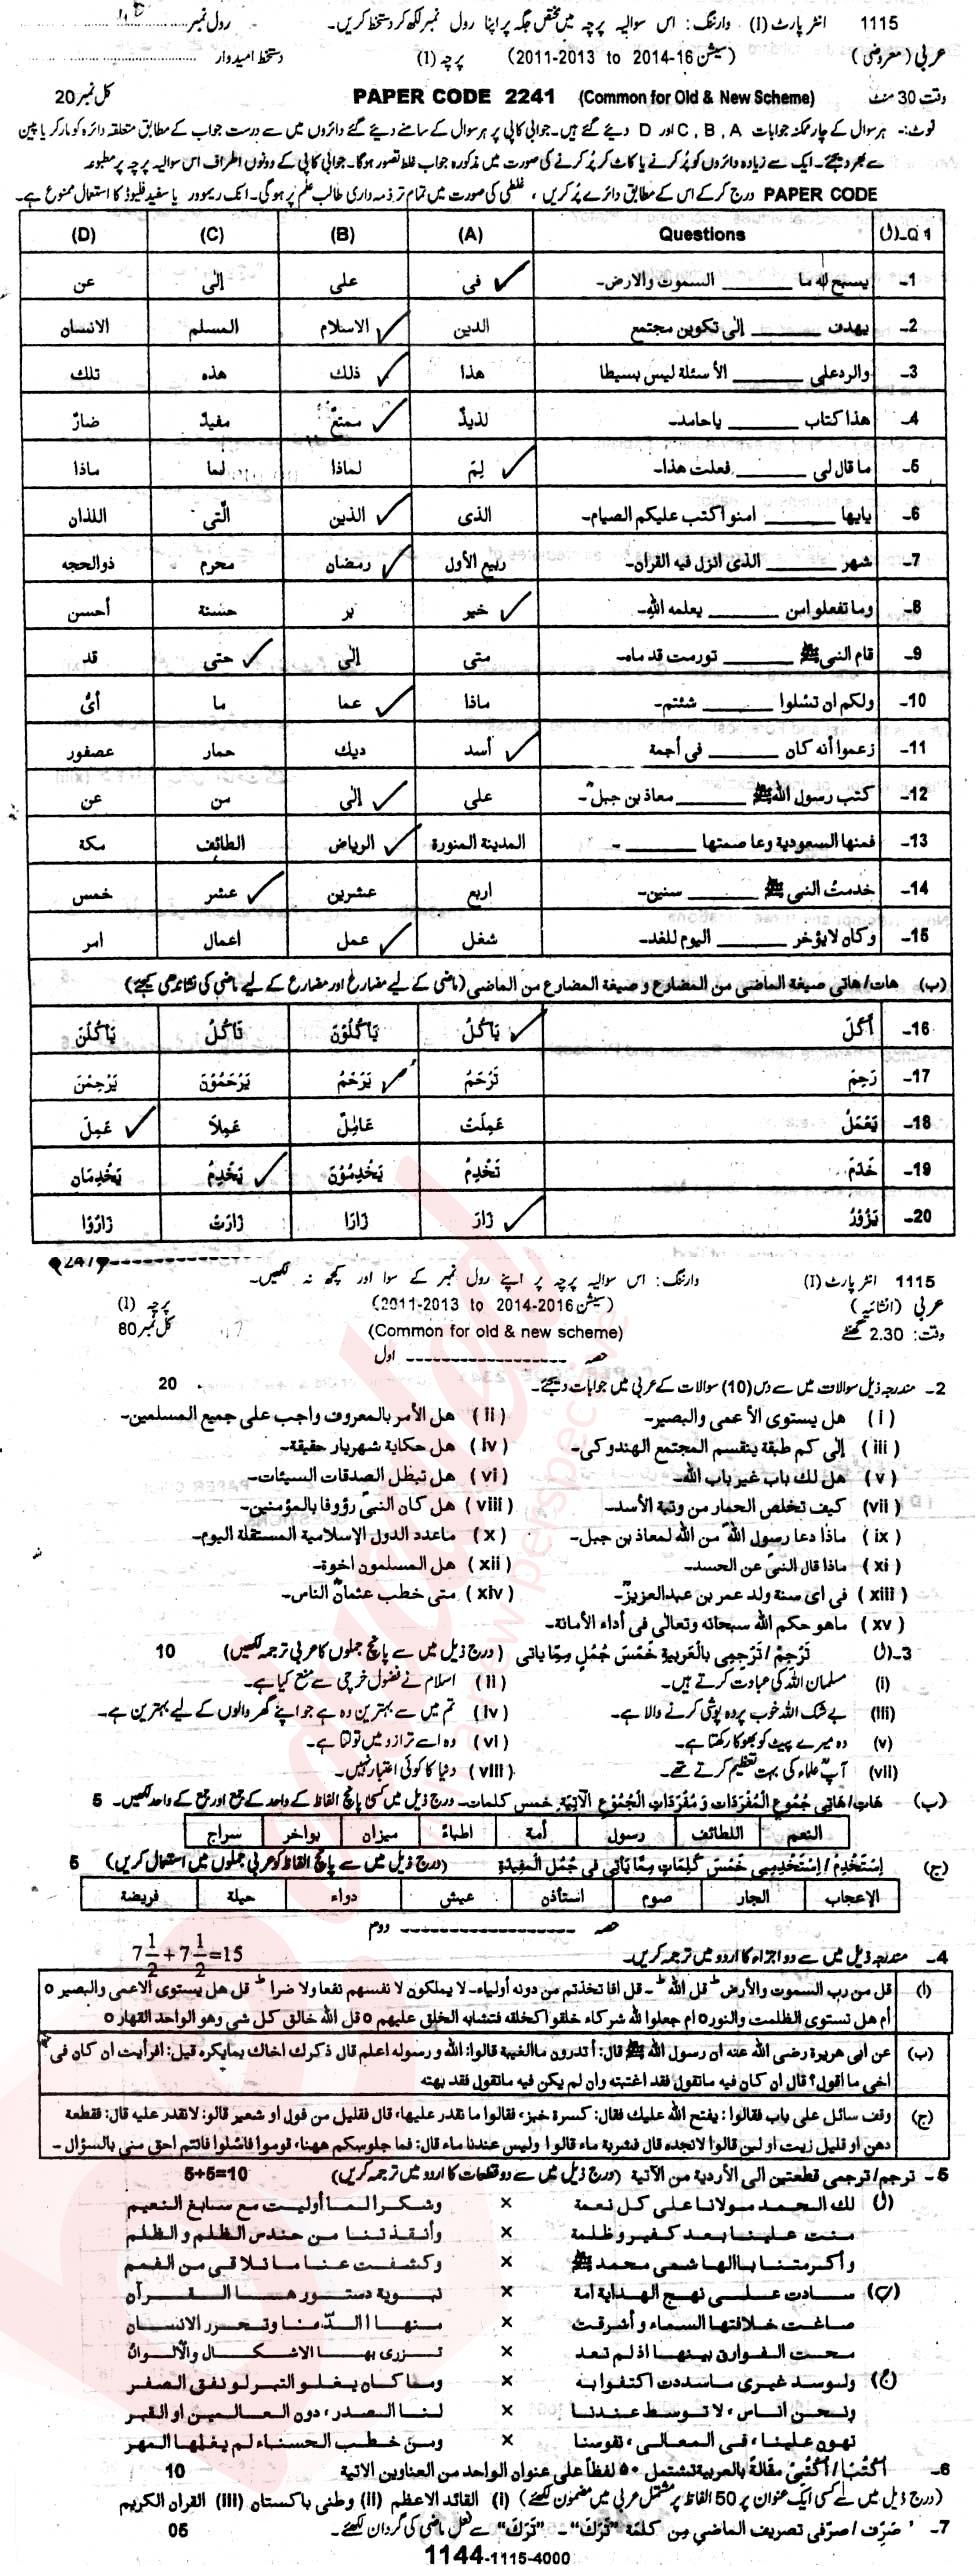 1115 انٹر پارٹ (I) وارننگ: اس سوالیہ پرچہ میں مختص جگہ پر اپنا رول نمبر لکھ کر دستخط کریں۔ رول نمبر
عربی (معروضی) (سیشن 2014-16 to 2011-2013) پرچہ (I) دستخط امیدوار
وقت 30 منٹ PAPER CODE 2241 (Common for Old & New Scheme) کل نمبر 20
نوٹ:۔ ہر سوال کے چار ممکنہ جوابات A, B, C اور D دیئے گئے ہیں۔ جوابی کاپی پر ہر سوال کے سامنے دیئے گئے دائروں میں سے درست جواب کے مطابق متعلقہ دائرہ کو مارکر یا پین
سے بھر دیجئے۔ ایک سے زیادہ دائروں کو پُر کرنے یا کاٹ کر پُر کرنے کی صورت میں مذکورہ جواب غلط تصور ہوگا۔ جوابی کاپی کے دونوں اطراف اس سوالیہ پرچہ پر مطبوعہ
PAPER CODE درج کر کے اس کے مطابق دائرے پُر کریں، غلطی کی صورت میں تمام تر ذمہ داری طالب علم پر ہوگی۔ انک ریموور یا سفید فلیوڈ کا استعمال ممنوع ہے۔
Q-1(ل) Questions (A) (B) (C) (D)
1- يسبح له ما ______ السموت والارض۔ فى على إلى عن
2- يهدف ______ إلى تكوين مجتمع الدين الاسلام المسلم الانسان
3- والرد على ______ الأسئلة ليس بسيطا هذا ذلك هذه تلك
4- هذا كتاب ______ يا حامد۔ لذيذٌ ممتعٌ مفيدٌ ضارٌ
5- ما قال لى ______ فعلت هذا۔ لِمَ لماذا لما ماذا
6- يايها ______ امنوا كتب عليكم الصيام۔ الذى الذين الّتى اللذان
7- شهر ______ الذى انزل فيه القران۔ ربيع الأول رمضان محرم ذوالحجه
8- وما تفعلوا من ______ يعلمه الله۔ خير بر حسنة أحسن
9- قام النبى ﷺ ______ تورمت قدماه۔ متى إلى حتى قد
10- ولكم ان تسئلوا ______ شئتم۔ ماذا عما ما أىُّ
11- زعموا أنه كان ______ فى أجمة أسد ديك حمار عصفور
12- كتب رسول الله ﷺ ______ معاذ بن جبلؓ۔ على إلى من عن
13- فمنها السعودية وعاصمتها ______ ۔ المدينة المنورة الرياض الطائف مكة
14- خدمتُ النبى ﷺ ______ سنين۔ اربع عشرين عشر خمس
15- وكان لايؤخر ______ اليوم للغد۔ شغل عمل اعمال امر
(ب) هات/هاتى صيغة الماضى من المضارع و صيغة المضارع من الماضى (ماضی کے لیے مضارع اور مضارع کے لیے ماضی کی نشاندھی کیجئے)
16- أَكَلَ يَأكُلُ يَأكُلُوْنَ تَأكُلُ يَأكُلْنَ
17- رَحِمَ تَرْحَمُ يَرْحَمُ يَرْحَمُوْنَ يَرْحَمْنَ
18- يَعْمَلُ عَمِلَتْ عَامِلٌ عَمِلاَ عَمِلَ
19- خَدَمَ تَخْدِمُ يَخْدِمُوْنَ يَخْدِمُ يَخْدِمَانِ
20- يَزُوْرُ زَارَ زَارَا زَارَتْ زَارُوْا
1115 انٹر پارٹ (I) وارننگ: اس سوالیہ پرچہ پر اپنے رول نمبر کے سوا اور کچھ نہ لکھیں۔
عربی (انشائیہ) (سیشن 2014-2016 to 2011-2013) پرچہ (I)
وقت: 2.30 گھنٹے (Common for old & new scheme) کل نمبر 80
حصہ ------------------ اول
2- مندرجہ ذیل سوالات میں سے دس (10) سوالات کے عربی میں جوابات دیجئے۔ 20
(i) هل يستوى الأعمى والبصير۔ (ii) هل الأمر بالمعروف واجب على جميع المسلمين۔
(iii) إلى كم طبقة ينقسم المجتمع الهندوكى۔ (iv) هل حكاية شهريار حقيقة۔
(v) هل لك باب غير باب الله۔ (vi) هل تبطل الصدقات السيئات۔
(vii) كيف تخلص الحمار من وثبة الأسد۔ (viii) هل كان النبىؐ رؤوفا بالمؤمنين۔
(ix) ماذا دعا رسول اللهؐ من الله لمعاذ بن جبل۔ (x) ما عدد الدول الإسلامية المستقلة اليوم۔
(xi) ماذا قال النبىؐ عن الحسد۔ (xii) هل المسلمون اخوة۔
(xiii) فى اى سنة ولد عمر بن عبدالعزيزؒ۔ (xiv) متى خطب عثمانؓ الناس۔
(xv) ماهو حكم الله سبحانه وتعالى فى أداء الأمانة۔
3-(ل) تَرْجِمْ/تَرْجِمِى بِالْعَرَبِيةِ خَمْسَ جُمَلٍ مِمَّا ياتى (درج ذیل میں سے پانچ جملوں کا عربی ترجمہ لکھیں) 10
(i) مسلمان اللہ کی عبادت کرتے ہیں۔ (ii) اسلام نے فضول خرچی سے منع کیا ہے۔
(iii) بے شک اللہ خوب پردہ پوشی کرنے والا ہے۔ (iv) تم میں سے بہترین وہ ہے جو اپنے گھر والوں کے لیے بہترین ہے۔
(v) وہ میرے پیٹ کو بھوکا رکھتا ہے۔ (vi) وہ اسے ترازو میں تولتا ہے۔
(vii) آپؒ علماء کی بہت تعظیم کرتے تھے۔ (viii) دنیا کا کوئی اعتبار نہیں۔
(ب) هَاتِ/هَاتِى جُمُوعَ الْمُفْرَدَاتِ وَ مُفْرَدَاتِ الْجُمُوْعِ الْآتِيَةِ خمس كلمات۔ درج ذیل میں کسی پانچ الفاظ کے واحد کے جمع اور جمع کے واحد لکھیں۔ 5
النعم اللطائف رسول أمة اطباءُ ميزان بواخر سراج
(ج) اِسْتَخْدِمْ/اِسْتَخْدِمِى خَمْسَ كَلِمَاتٍ مِمَّا يَأتِى فِى جُمَلِ الْمُفِيْدَةِ (درج ذیل میں سے پانچ الفاظ کو عربی جملوں میں استعمال کریں) 5
الإعجاب الجار صوم استأذن عيش دواء حيلة فريضة
حصہ ------------------ دوم
4- مندرجہ ذیل میں سے دو اجزاء کا اردو میں ترجمہ کریں۔ 7 1/2 + 7 1/2 = 15
(ا) قل من رب السموت والأرض ط قل الله ط قل افا تخذتم من دونه أولياء۔ لا يملكون لا نفسهم نفعا ولا ضرا ط قل هل يستوى الاعمى والبصير o
أم هل تستوى الظلمت والنور o ام جعلوا لله شركاء خلقوا كخلقه فتشابه الخلق عليهم o قل الله خالق كل شى وهو الواحد القهار o
(ب) عن ابى هريرة رضى الله عنه ان رسول الله ﷺ قال: أتدرون ما الغيبة قالوا: الله و رسوله اعلم قال ذكرك اخاك بما يكره قيل: افرأيت ان كان فى
أخى ما اقول؟ قال ان كان فيه ماتقول فقد اغتبته وان لم يكن فيه ماتقول فقد بهته
(ج) وقف سائل على باب فقالوا: يفتح الله عليك فقال: كسرة خبز، فقالوا ما نقدر عليها، قال فقليل من فول او شعير قالو: لانقدر عليه قال: فقطعة
دهن او قليل زيت او لبن قالوا لانجده قال فشربة ماء قالوا وليس عندنا ماء قال: فما جلوسكم ههنا، قوموا فاسئلوا فانتم احق منى بالسؤال۔
5- ترجم/ترجمى قطعتين الى الأردية من الآتية (درج ذیل میں سے دو قطعات کا اردو میں ترجمہ کریں) 5+5=10
(ل) لك الحمد مولانا على كل نعمة × وشكرا لما أوليت مع سابغ النعيم
مننت علينا بعد كفر وظلمة × وأنقذتنا من حندس الظلم و الظلم
وأكرمتنا بالهاشمى محمد ﷺ × وكشفت عنا ما نلاقى من الغمم
(ب) سادت على نهج الهداية امة × نبوية دستورها القرآن
صاغت خلافتها السماء و أشرقت × منها الدّمنا وتحرر الانسان
محت الفوارق بينها اذ لم تعد × تزرى بها الاشكال والألوانُ
(ج) ولو سد غيرى ماسددت اكتفوا به × وما كان يغلو التبر لو نفق الصفر
ونحن اناس، لا توسط عندنا × لنا الصدر، دون العالمين او القبر
تهون علينا، فى المعالى، نفوسنا × ومن خطب الحسناء لم يغلها المهر
6- اُكْتُبْ/اُكْتُبِىْ مَقَالَةً بالعربية تشتمل ۵۰ لفظاً على عنوان الواحد من العناوين الآتية 10
(درج ذیل میں سے کسی ایک عنوان پر 50 الفاظ پر مشتمل عربی میں مضمون لکھئے) (i) القائد الاعظم (ii) وطنى باكستان (iii) القران الكريم
7- صَرِّف/صَرِّفى تصريف الماضي مِن كلمَة "تَرَكَ" ۔ "تَرَكَ" سے فعل ماضی کی گردان لکھئے۔ 05
1144-1115-4000